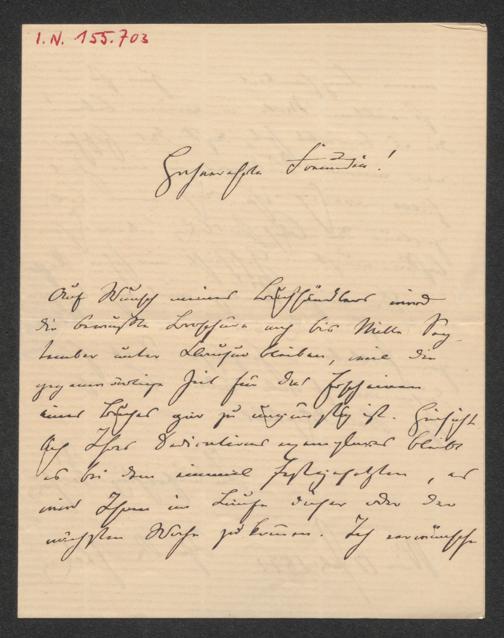 I.N. 155.703
Geehrteste Freundin!
Auf Wunsch meines Buchhändlers wird
die bewußte Broschüre noch bis Mitte Sep-
tember unter Clausur bleiben, weil die
gegenwärtige Zeit für das Erscheinen
eines Buches gar zu ungünstig ist. Hinsicht-
lich Ihres Dedicationsexemplares bleibt
es bei dem einmal Festgesetzten, es
wird Ihnen im Laufe dieser oder der
nächsten Woche zukommen. Ich verwünsche